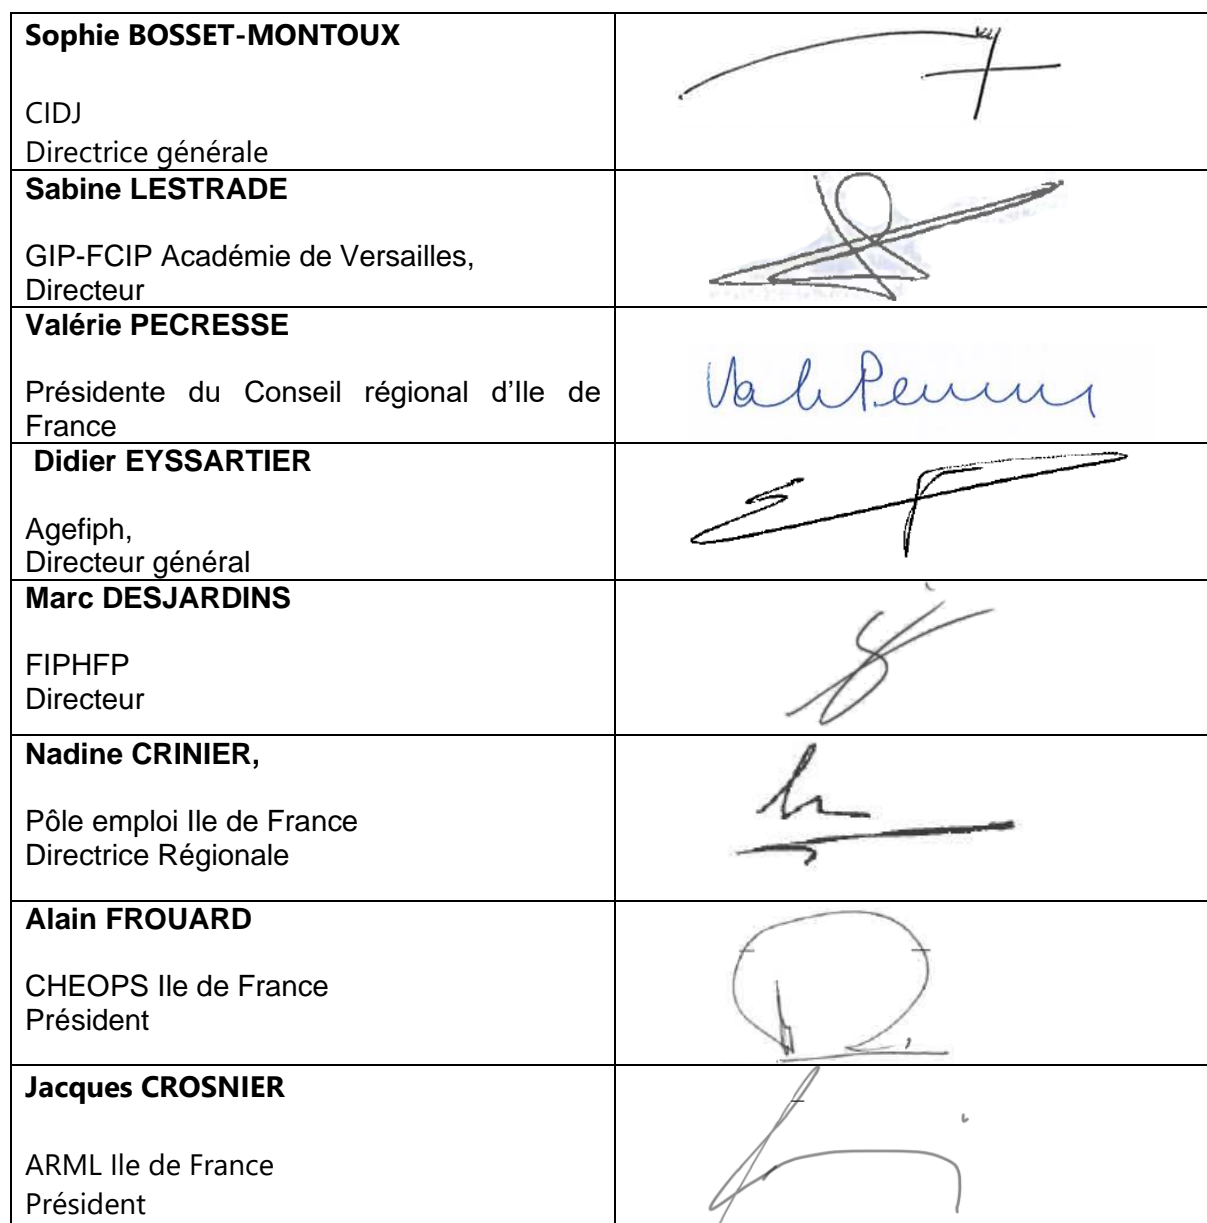 Sophie BOSSET-MONTOUX
CIDJ
Directrice générale
Sabine LESTRADE
GIP-FCIP Académie de Versailles,
Directeur
Valérie PECRESSE
Présidente du Conseil régional d'Ile de
France
Didier EYSSARTIER
Agefiph,
Directeur général
Marc DESJARDINS
FIPHFP
Directeur
Nadine CRINIER,
Pôle emploi Ile de France
Directrice Régionale
Alain FROUARD
CHEOPS Ile de France
Président
Jacques CROSNIER
ARML Ile de France
Président